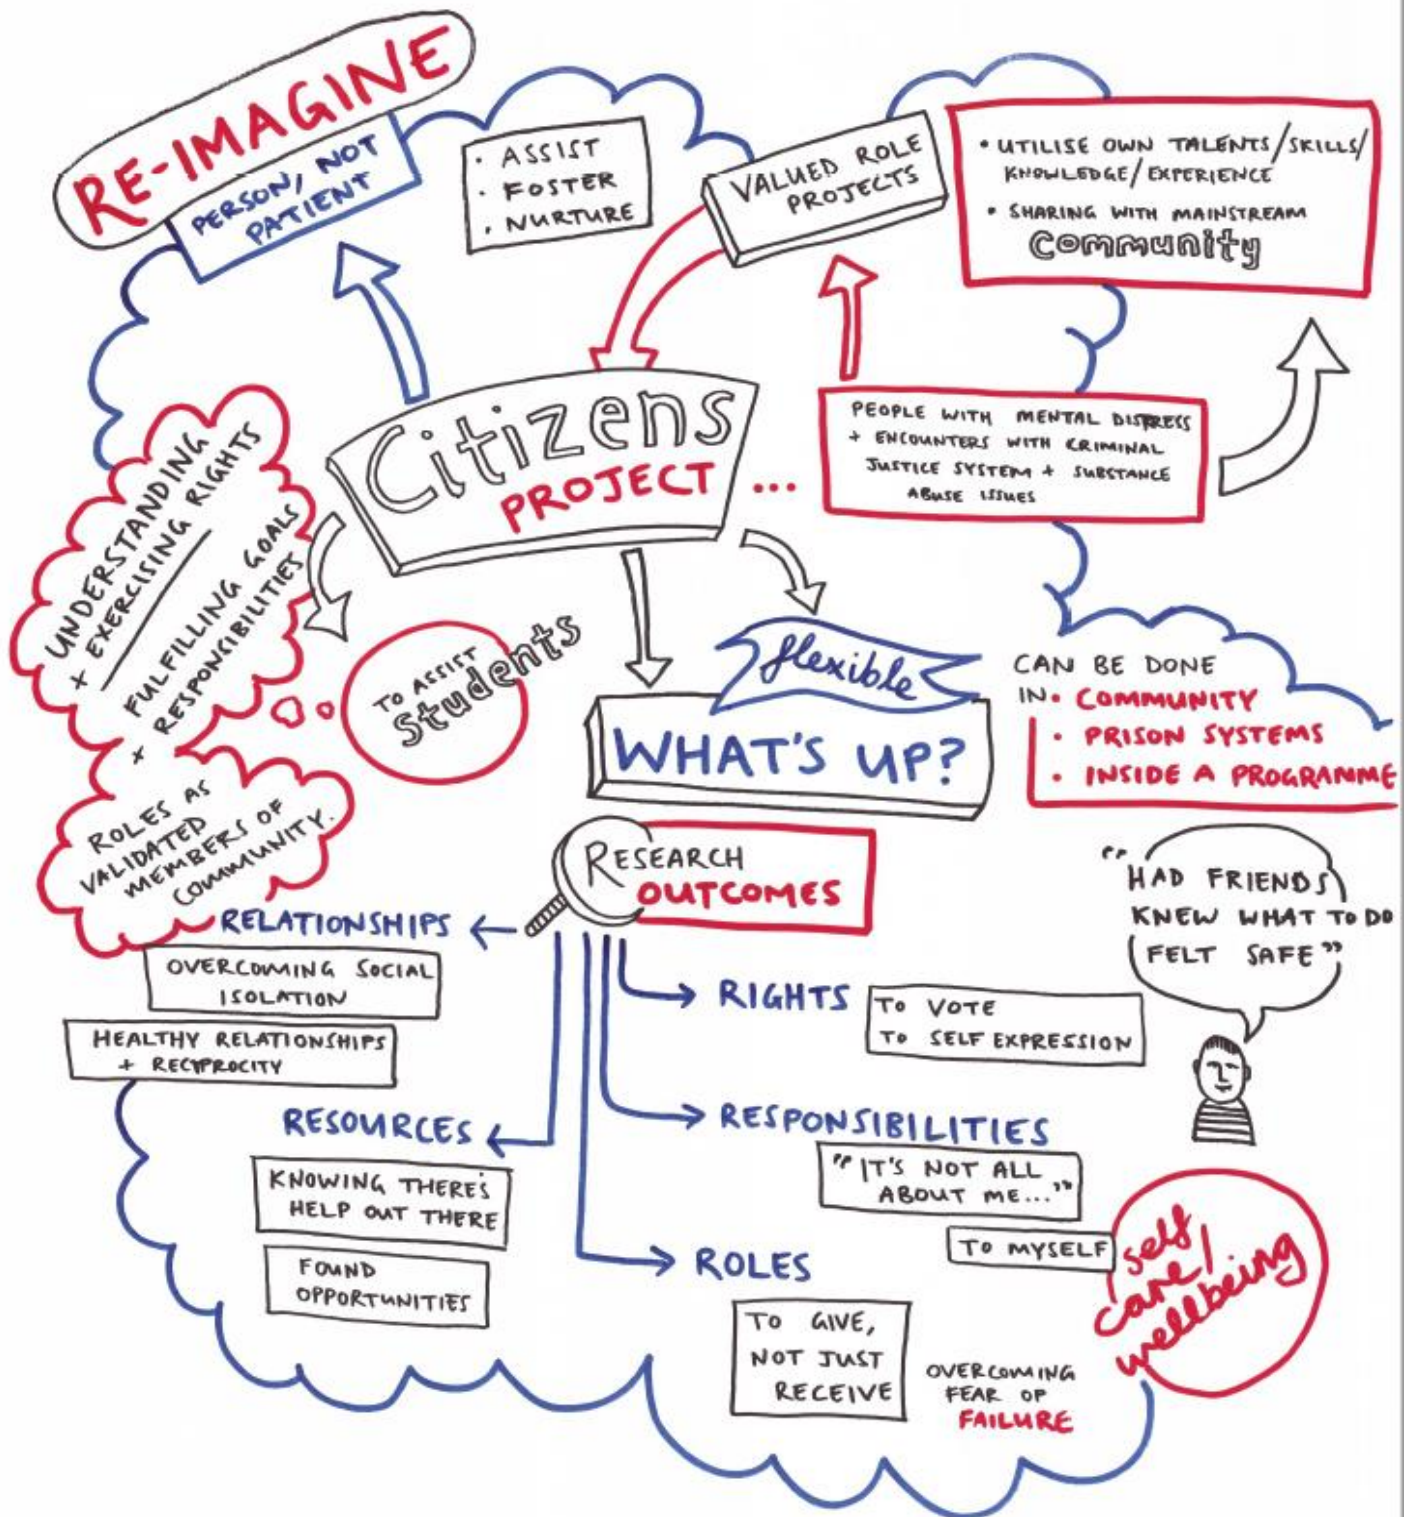 RE-IMAGINE
PERSON, NOT
PATIENT
· ASSIST
· FOSTER
· NURTURE
VALUED ROLE
PROJECTS
• UTILISE OWN TALENTS/SKILLS/
KNOWLEDGE/EXPERIENCE
• SHARING WITH MAINSTREAM
Community
Citizens
PROJECT ...
PEOPLE WITH MENTAL DISTRESS
+ ENCOUNTERS WITH CRIMINAL
JUSTICE SYSTEM + SUBSTANCE
ABUSE ISSUES
UNDERSTANDING
+ EXERCISING RIGHTS
FULFILLING GOALS
+ RESPONCIBILITIES
ROLES AS
VALIDATED
MEMBERS OF
COMMUNITY.
TO ASSIST
Students
flexible
WHAT'S UP?
CAN BE DONE
IN • COMMUNITY
• PRISON SYSTEMS
• INSIDE A PROGRAMME
RESEARCH
OUTCOMES
"HAD FRIENDS
KNEW WHAT TO DO
FELT SAFE"
RELATIONSHIPS
OVERCOMING SOCIAL
ISOLATION
HEALTHY RELATIONSHIPS
+ RECIPROCITY
RIGHTS
TO VOTE
TO SELF EXPRESSION
RESOURCES
KNOWING THERE'S
HELP OUT THERE
FOUND
OPPORTUNITIES
RESPONSIBILITIES
"IT'S NOT ALL
ABOUT ME..."
TO MYSELF
self
care/
wellbeing
ROLES
TO GIVE,
NOT JUST
RECEIVE
OVERCOMING
FEAR OF
FAILURE